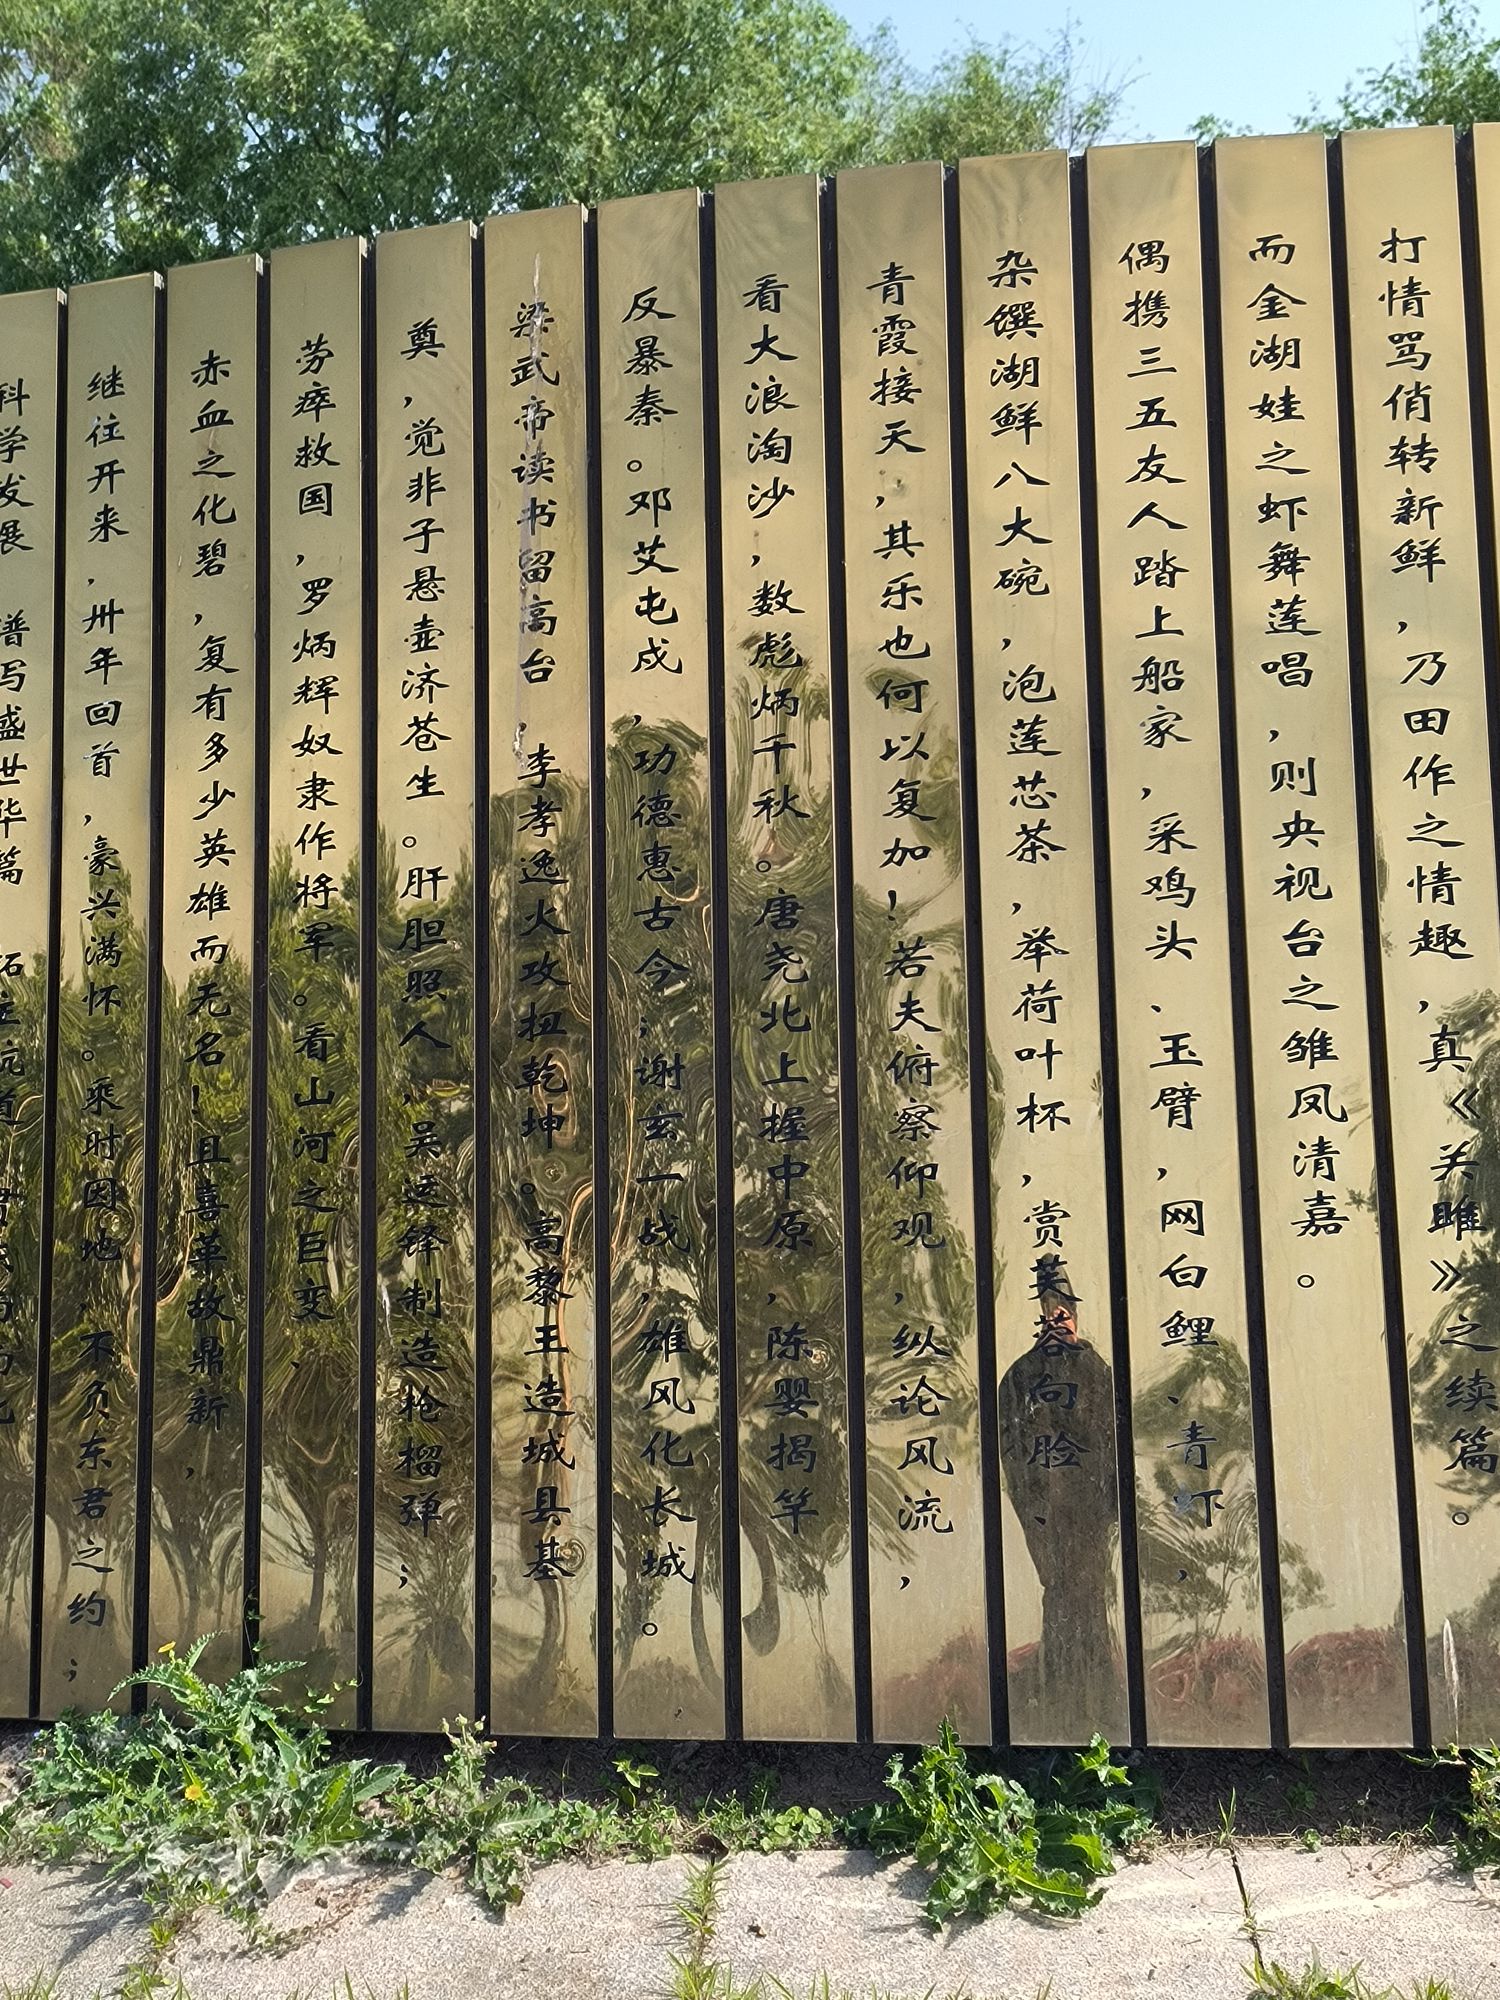 打情骂俏转新鲜，乃田作之情趣，真《关雎》之续篇。
而金湖娃之虾舞莲唱，则央视台之雏凤清嘉。
偶携三五友人踏上船家，采鸡头、玉臂，网白鲤、青虾，
杂馔湖鲜八大碗，泡莲芯茶，举荷叶杯，赏芙蓉向脸、
青霞接天，其乐也何以复加！若夫俯察仰观，纵论风流，
看大浪淘沙，数彪炳千秋。唐尧北上握中原，陈婴揭竿
反暴秦。邓艾屯戍，功德惠古今；谢玄一战，雄风化长城。
梁武帝读书留高台，李孝逸火攻扭乾坤。高黎王造城县基
奠，觉非子悬壶济苍生。肝胆照人，吴运铎制造枪榴弹；
劳瘁救国，罗炳辉奴隶作将军。看山河之巨变、
赤血之化碧，复有多少英雄而无名！且喜革故鼎新，
继往开来，卅年回首，豪兴满怀。乘时因地，不负东君之约；
科学发展 谱写盛世华篇